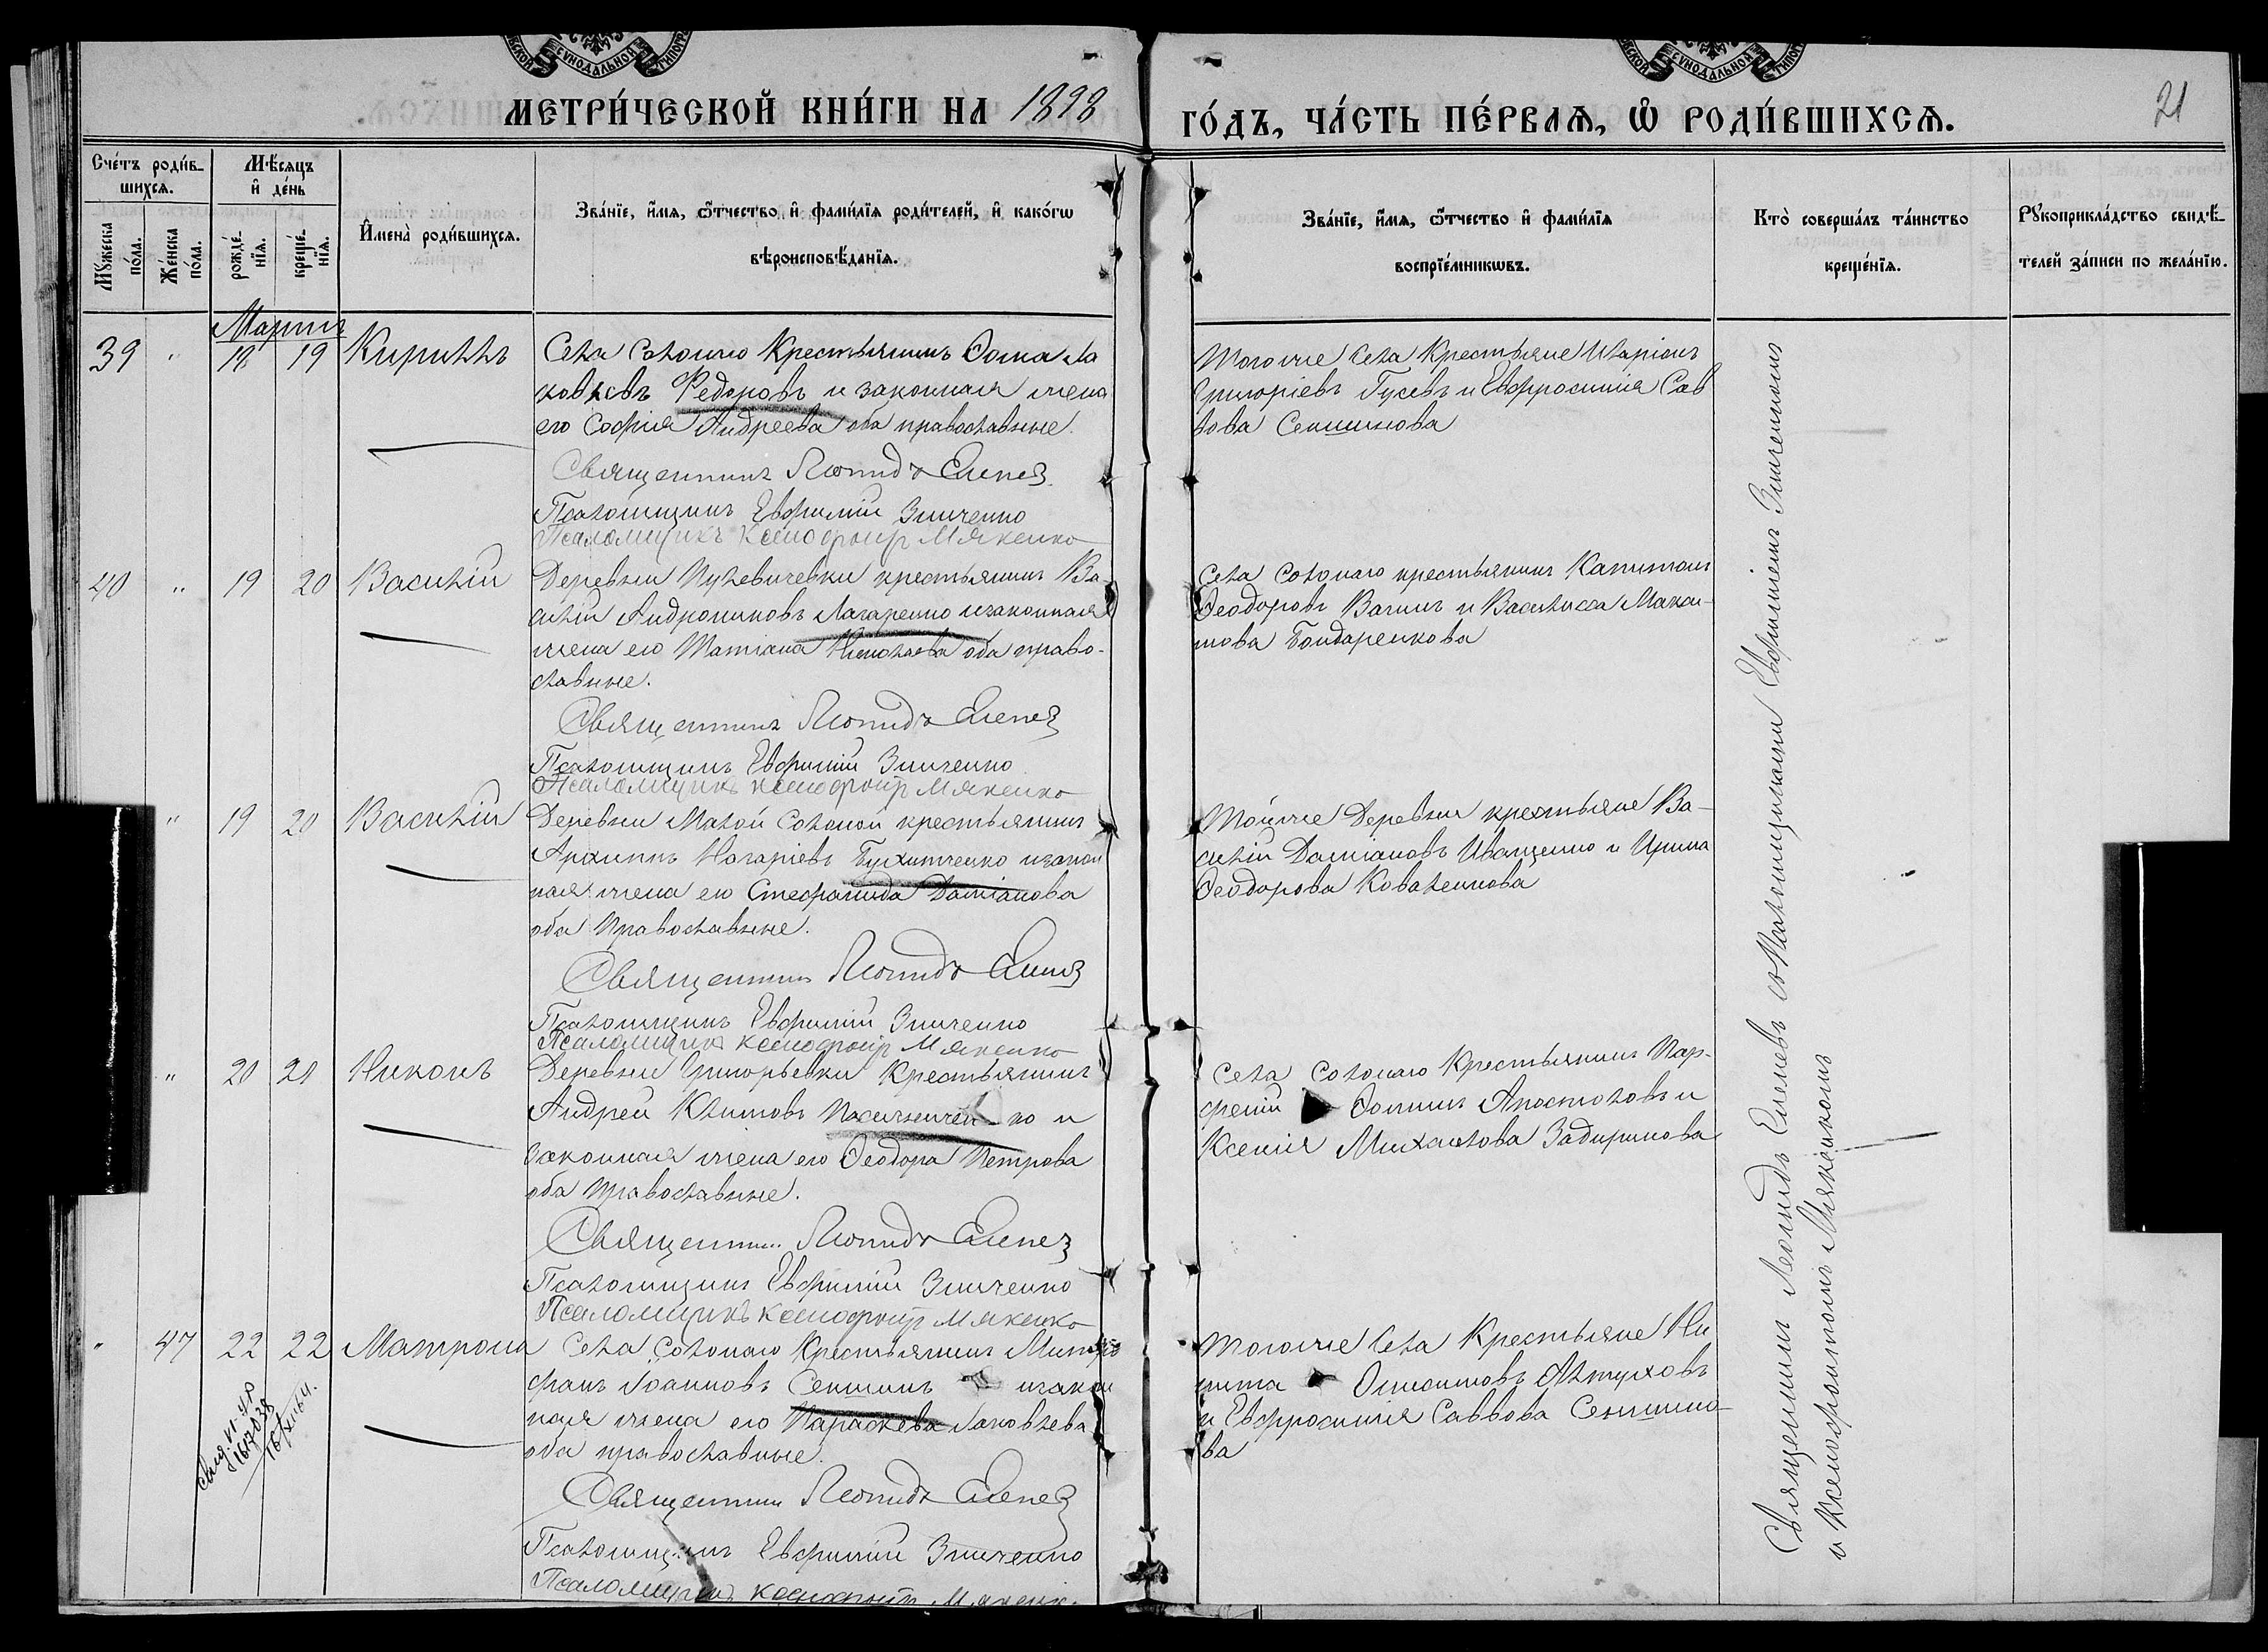 МЕТРИ́ЧЕСКОЙ КНИ́ГИ НА 1898
ГО́ДЪ, ЧА́СТЬ ПЕ́РВАѦ, Ѡ РОДИ́ВШИХСѦ.
21
Сче́тъ роди́в-
шихсѧ.
Мѣ́сѧцъ
и҆ де́нь
Му́жеска
по́ла.
Же́нска
по́ла.
рожде́-
нїѧ.
креще́-
нїѧ.
И҆мена̀ роди́вшихсѧ.
Зва́нїе, и҆́мѧ, ѻ҆́тчество и҆ фами́лїѧ роди́телей, и҆ како́гѡ
вѣроисповѣ́данїѧ.
Зва́нїе, и҆́мѧ, ѻ҆́тчество и҆ фами́лїѧ
воспрїе́мникѡвъ.
Кто̀ соверша́лъ та́инство
креще́нїѧ.
Рꙋкоприкла́дство свидѣ́-
телей за́писи по жела́нїю.
Мартъ
39 " 18 19 Кириллъ
Села Солонаго Крестьянинъ Ѳома Іа
ковлевъ Федоровъ и законная жена
его Софія Андреева оба православные
Священникъ Леонидъ
Псаломщикъ Евфимій Зинченко
Псаломщикъ Ксенофонтъ Мякенко
Тогоже Села Крестьяне Иларіонъ
Григоріевъ Гусевъ и Евфросинія Сав
вова Сеншинова
40 " 19 20 Василій
Деревни крестьянинъ Ва-
силій Андрониковъ Лагаренко и законная
жена его Татіана Николаева оба право-
славные.
Священникъ Леонидъ
Псаломщикъ Евфимій Зинченко
Псаломщикъ Ксенофонтъ Мякенко
Села Солонаго крестьянинъ Капитонъ
Ѳеодоровъ и Василисса Макси-
мова Бондаренкова
" 19 20 Василій
Деревни Малой Солоной крестьянинъ
Архиппъ и закон
ная жена его Стефанида Даміанова
оба Православные.
Священникъ Леонидъ
Псаломщикъ Евфимій Зинченко
Псаломщикъ Ксенофонтъ Мякенко
Тойже Деревни крестьяне Ва-
силій Даміановъ Иващенко и Ирина
Ѳеодорова Коваленкова
" 20 21 Никонъ
Деревни Григорьевки Крестьянинъ
Андрей Климовъ и
законная жена его Ѳеодора Петрова
оба Православные.
Священникъ Леонидъ
Псаломщикъ Евфимій Зинченко
Псаломщикъ Ксенофонтъ Мякенко
Села Солонаго Крестьянинъ Пар-
феній Ѳоминъ Апостоловъ и
Ксенія Михаилова Задирикова
" 47 22 22 Матрона
Села Солонаго Крестьянинъ Митро
фанъ Іоанновъ Сеншинъ и закон
ная жена его Параскева Іаковлева
оба православные.
Священникъ Леонидъ
Псаломщикъ Евфимій Зинченко
Псаломщикъ Ксенофонтъ Мякенк
Тогоже Села Крестьяне Ни
кита
и Евфросинія Саввова Сеншино-
ва
Священникъ Леонидъ съ Псаломщиками Евфиміемъ Зинченкомъ
и Ксенофонтомъ Мякенкомъ